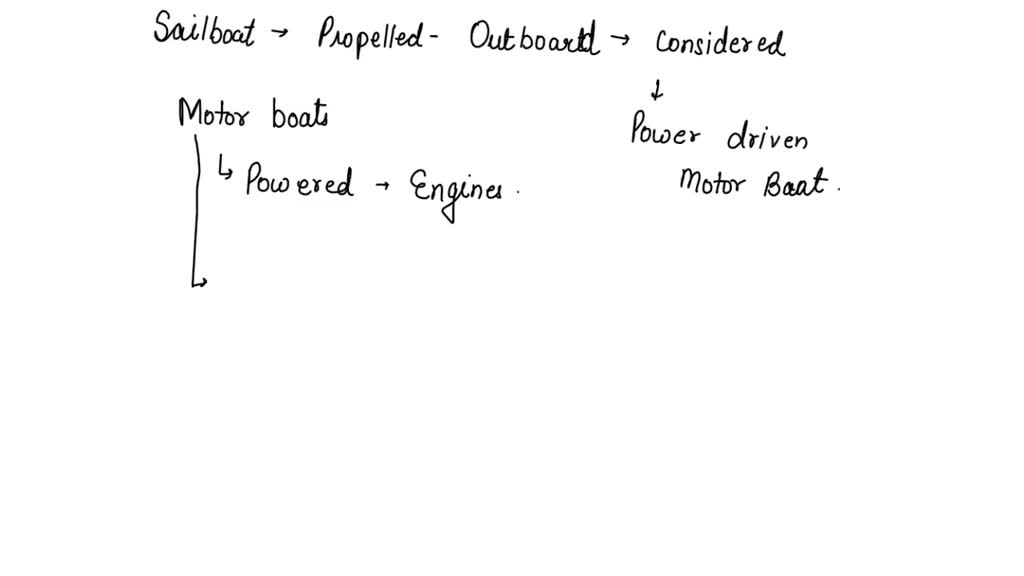 Sailboat → Propelled - Outboard → Considered
↓
Motor boats
Power driven
Motor Boat.
↳ Powered → Engines.